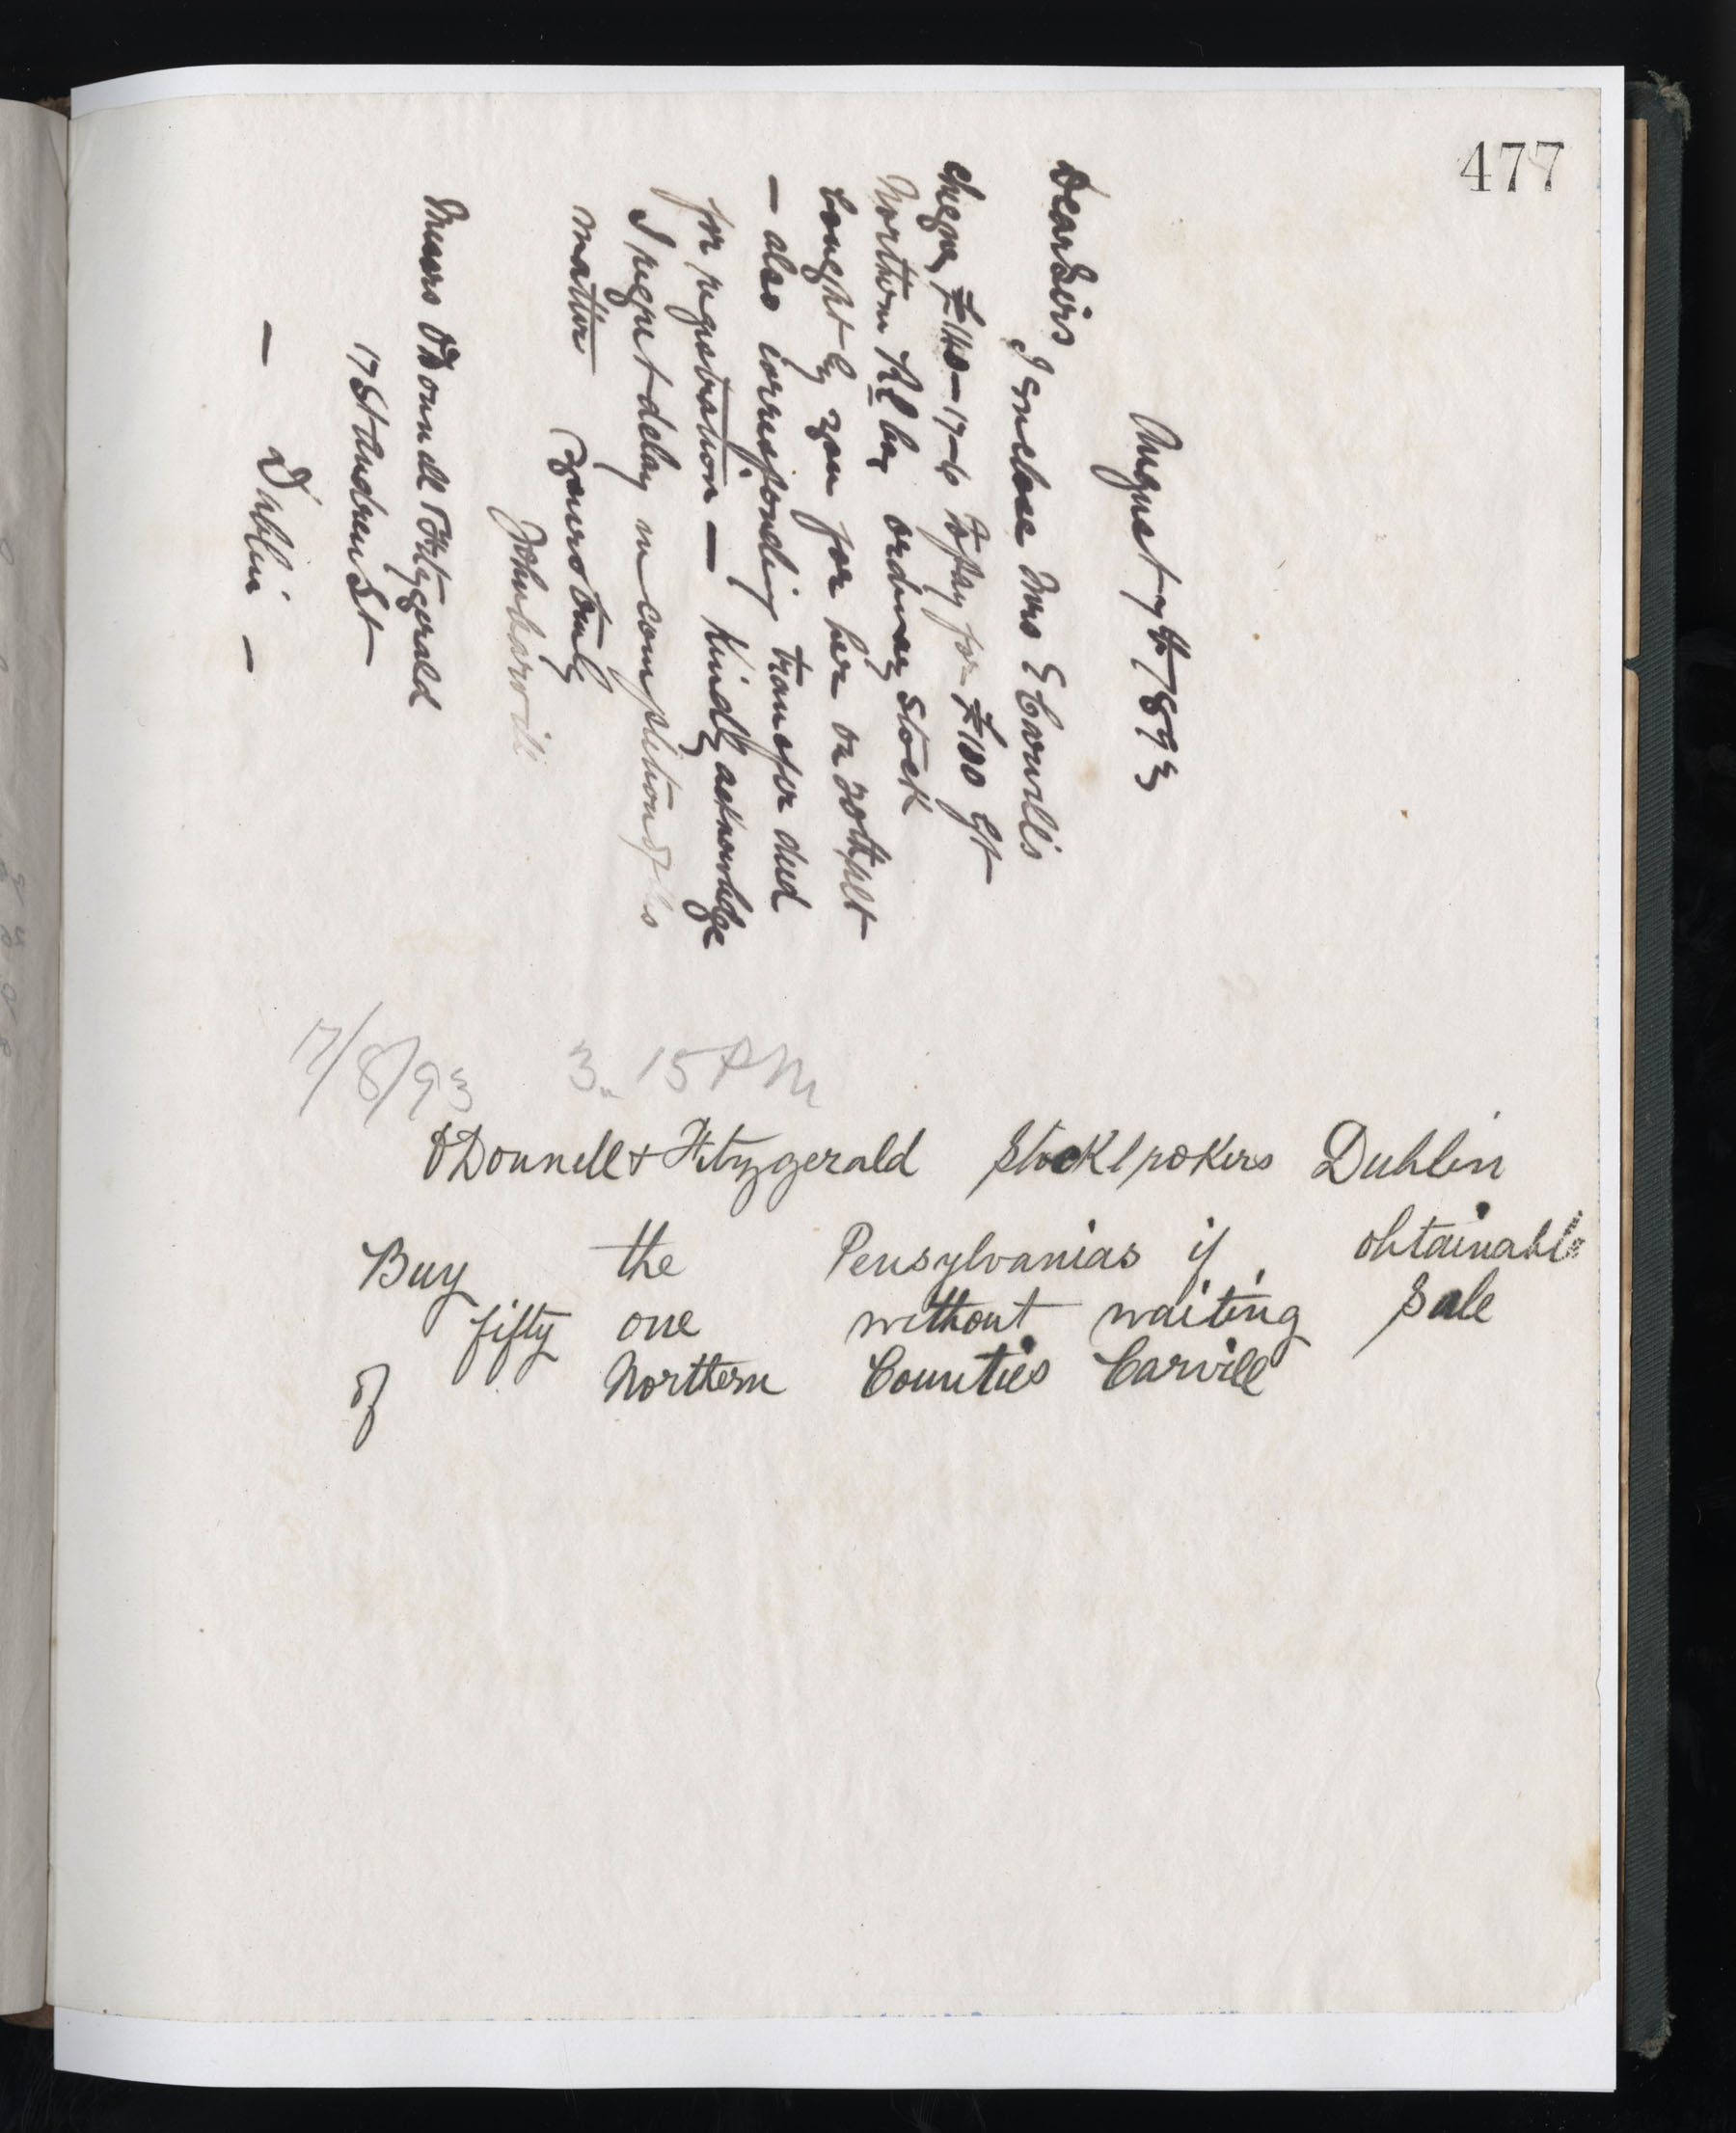 477
August 7th 1893
Dear Sirs
I enclose Mrs E Carvill's
cheque £140-17-6 to pay for £100 Gt
Northern Rl way ordinary Stock
bought by you for her on 20th ult
— also corresponding transfer deed
for registration — Kindly acknowledge
I regret delay in completion of this
matter
Yours truly
John Carvill
Messrs O'Donnell & Fitzgerald
17 St Andrew St
— Dublin —
17/8/93 3.15 PM
O'Donnell & Fitzgerald Stockbrokers Dublin
Buy the Pensylvanias if obtainable
fifty one without waiting Sale
of Northern Counties Carvill